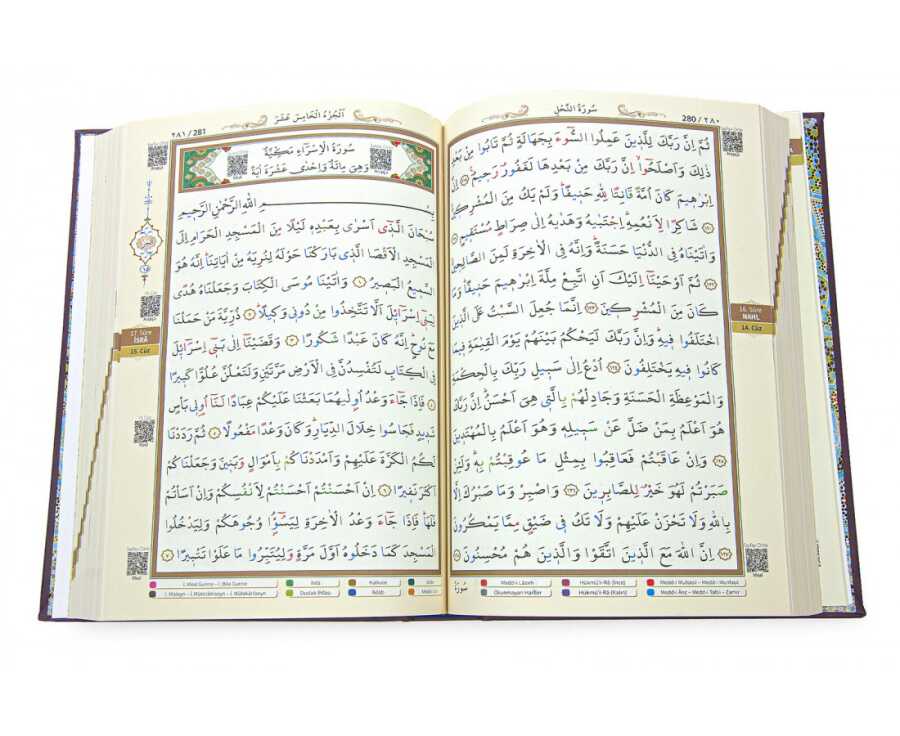 سُورَةُ النَّحْلِ
280 / ٢٨٠
ثُمَّ اِنَّ رَبَّكَ لِلَّذِينَ عَمِلُوا السُّٓوءَ بِجَهَالَةٍ ثُمَّ تَابُوا مِنْ بَعْدِ
ذٰلِكَ وَاَصْلَحُٓوا اِنَّ رَبَّكَ مِنْ بَعْدِهَا لَغَفُورٌ رَحِيمٌ ﴿١١٩﴾ اِنَّ
اِبْرٰهِيمَ كَانَ اُمَّةً قَانِتًا لِلّٰهِ حَنِيفًا وَلَمْ يَكُ مِنَ الْمُشْرِكِينَ
﴿١٢٠﴾ شَاكِرًا لِاَنْعُمِهِ اِجْتَبٰيهُ وَهَدٰيهُ اِلٰى صِرَاطٍ مُسْتَقِيمٍ ﴿١٢١﴾
وَاٰتَيْنَاهُ فِي الدُّنْيَا حَسَنَةً وَاِنَّهُ فِي الْاٰخِرَةِ لَمِنَ الصَّالِحِينَ
﴿١٢٢﴾ ثُمَّ اَوْحَيْنَٓا اِلَيْكَ اَنِ اتَّبِعْ مِلَّةَ اِبْرٰهِيمَ حَنِيفًا وَمَا
كَانَ مِنَ الْمُشْرِكِينَ ﴿١٢٣﴾ اِنَّمَا جُعِلَ السَّبْتُ عَلَى الَّذِينَ
اخْتَلَفُوا فِيهِ وَاِنَّ رَبَّكَ لَيَحْكُمُ بَيْنَهُمْ يَوْمَ الْقِيٰمَةِ فِيمَا
كَانُوا فِيهِ يَخْتَلِفُونَ ﴿١٢٤﴾ اُدْعُ اِلٰى سَبِيلِ رَبِّكَ بِالْحِكْمَةِ
وَالْمَوْعِظَةِ الْحَسَنَةِ وَجَادِلْهُمْ بِالَّتِي هِيَ اَحْسَنُ اِنَّ رَبَّكَ
هُوَ اَعْلَمُ بِمَنْ ضَلَّ عَنْ سَبِيلِهِ وَهُوَ اَعْلَمُ بِالْمُهْتَدِينَ
﴿١٢٥﴾ وَاِنْ عَاقَبْتُمْ فَعَاقِبُوا بِمِثْلِ مَا عُوقِبْتُمْ بِهِ وَلَئِنْ
صَبَرْتُمْ لَهُوَ خَيْرٌ لِلصَّابِرِينَ ﴿١٢٦﴾ وَاصْبِرْ وَمَا صَبْرُكَ اِلَّا
بِاللّٰهِ وَلَا تَحْزَنْ عَلَيْهِمْ وَلَا تَكُ فِي ضَيْقٍ مِمَّا يَمْكُرُونَ
﴿١٢٧﴾ اِنَّ اللّٰهَ مَعَ الَّذِينَ اتَّقَوْا وَالَّذِينَ هُمْ مُحْسِنُونَ ﴿١٢٨﴾
Medd-i Lâzım
Hükmü'r-Râ (İnce)
Medd-i Muttasıl – Medd-i Munfasıl
Okunmayan Harfler
Hükmü'r-Râ (Kalın)
Medd-i Ârız – Medd-i Tabîi – Zamir
16. Sûre
NAHL
14. Cüz
اَلْجُزْءُ الْخَامِسَ عَشَرَ
٢٨١ / 281
سُورَةُ الْاِسْرَٓاءِ مَكِّيَّةٌ
وَهِيَ مِائَةٌ وَاِحْدٰى عَشَرَةَ اٰيَةً
بِسْمِ اللّٰهِ الرَّحْمٰنِ الرَّحِيمِ
سُبْحَانَ الَّذِٓي اَسْرٰى بِعَبْدِهِ لَيْلًا مِنَ الْمَسْجِدِ الْحَرَامِ اِلَى
الْمَسْجِدِ الْاَقْصَا الَّذِي بَارَكْنَا حَوْلَهُ لِنُرِيَهُ مِنْ اٰيَاتِنَا اِنَّهُ هُوَ
السَّمِيعُ الْبَصِيرُ ﴿١﴾ وَاٰتَيْنَا مُوسَى الْكِتَابَ وَجَعَلْنَاهُ هُدًى
لِبَنِٓي اِسْرَٓائِلَ اَلَّا تَتَّخِذُوا مِنْ دُونِي وَكِيلًا ﴿٢﴾ ذُرِّيَّةَ مَنْ حَمَلْنَا
مَعَ نُوحٍ اِنَّهُ كَانَ عَبْدًا شَكُورًا ﴿٣﴾ وَقَضَيْنَٓا اِلٰى بَنِٓي اِسْرَٓائِلَ
فِي الْكِتَابِ لَتُفْسِدُنَّ فِي الْاَرْضِ مَرَّتَيْنِ وَلَتَعْلُنَّ عُلُوًّا كَبِيرًا
﴿٤﴾ فَاِذَا جَٓاءَ وَعْدُ اُولٰيهُمَا بَعَثْنَا عَلَيْكُمْ عِبَادًا لَنَٓا اُولِي بَأْسٍ
شَدِيدٍ فَجَاسُوا خِلَالَ الدِّيَارِ وَكَانَ وَعْدًا مَفْعُولًا ﴿٥﴾ ثُمَّ رَدَدْنَا
لَكُمُ الْكَرَّةَ عَلَيْهِمْ وَاَمْدَدْنَاكُمْ بِاَمْوَالٍ وَبَنِينَ وَجَعَلْنَاكُمْ
اَكْثَرَ نَفِيرًا ﴿٦﴾ اِنْ اَحْسَنْتُمْ اَحْسَنْتُمْ لِاَنْفُسِكُمْ وَاِنْ اَسَأْتُمْ
فَلَهَا فَاِذَا جَٓاءَ وَعْدُ الْاٰخِرَةِ لِيَسُٓوؤُا وُجُوهَكُمْ وَلِيَدْخُلُوا
الْمَسْجِدَ كَمَا دَخَلُوهُ اَوَّلَ مَرَّةٍ وَلِيُتَبِّرُوا مَا عَلَوْا تَتْبِيرًا ﴿٧﴾
İhfâ
Kalkale
İklâb
17. Sûre
İSRÂ
15. Cüz